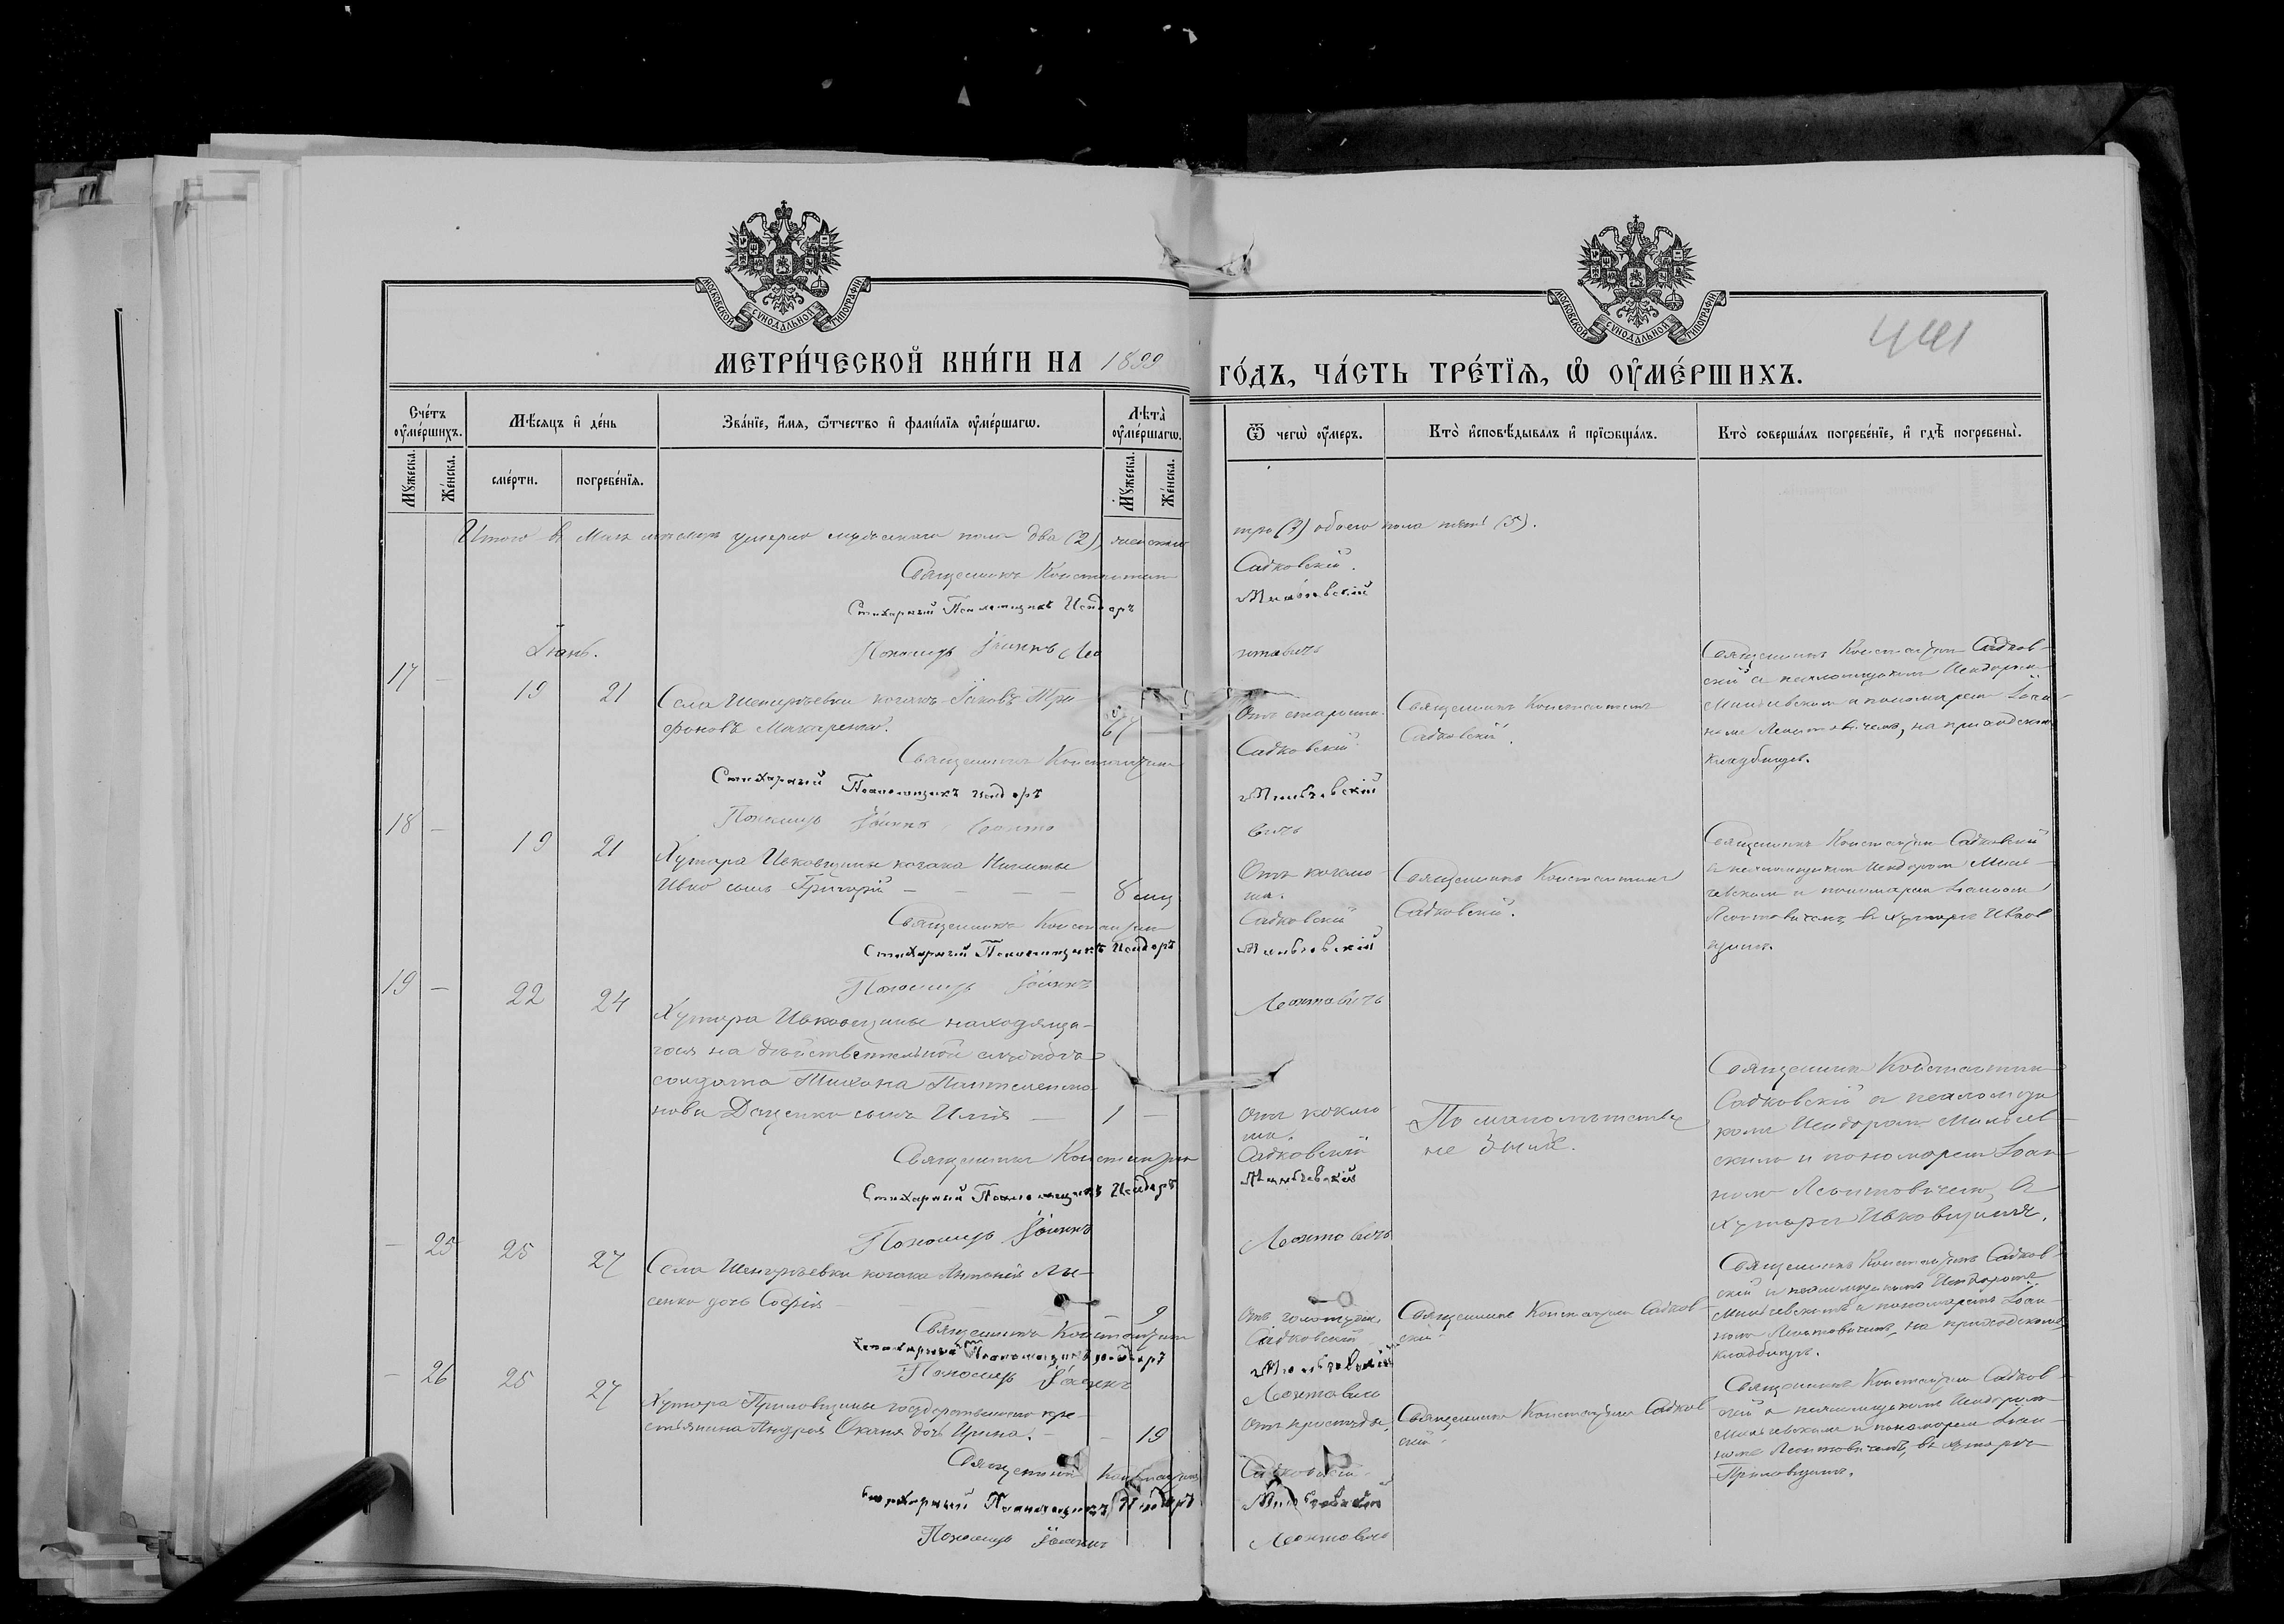 МОСКОВСКОЙ СѴНОДАЛЬНОЙ ТИПОГРАФІИ
МОСКОВСКОЙ СѴНОДАЛЬНОЙ ТИПОГРАФІИ
441
МЕТРИ́ЧЕСКОЙ КНИ́ГИ НА 1899 ГО́ДЪ, ЧА́СТЬ ТРЕ́ТЇѦ, Ѡ ОУ҆МЕ́РШИХЪ.
Сче́тъ оу҆ме́ршихъ.
Мѣ́сяцъ и҆ де́нь
Зва́нїе, и҆́мя, ѻ҆́тчество и҆ фами́лїя оу҆ме́ршагѡ.
Лѣ́та оу҆ме́ршагѡ.
Ѿ чегѡ̀ оу҆́меръ.
Кто̀ и҆сповѣ́дывалъ и҆ прїѡбща́лъ.
Кто̀ соверша́лъ погребе́нїе, и҆ гдѣ̀ погребены̀.
Му́жеска.
Же́нска.
сме́рти.
погребе́нїя.
Му́жеска.
Же́нска.
Итого въ Маѣ мѣсяцѣ умерло мужескаго пола два (2), женскаго три (3) обоего пола пять (5).
Священникъ Константинъ Садковскій.
Стихарный Псаломщикъ Исидоръ Миньчевскій
Пономарь Іоаннъ Леонтовичъ
Іюнь.
17 — 19 21
Села Шенгуръевки козакъ Іаковъ Три-
фоновъ Макаренко.
67
Отъ старости.
Священникъ Константинъ
Садковскій.
Священникъ Константинъ Садков-
скій съ псаломщикомъ Исидоромъ
Миньчевскимъ и пономаремъ Іоан-
номъ Леонтовичемъ, на приходскомъ
кладбищѣ.
Священникъ Константинъ Садковскій
Стихарный Псаломщикъ Исидоръ Миньчевскій
Пономарь Іоаннъ Леонтовичъ
18 — 19 21
Хутора Ивковщины козака Никиты
Ивко сынъ Григорій — — — —
8 мц
Отъ коклю-
ша.
Священникъ Константинъ
Садковскій.
Священникъ Константинъ Садковскій
съ псаломщикомъ Исидоромъ Минь-
чевскимъ и пономаремъ Іоанномъ
Леонтовичемъ, въ хуторѣ Ивков
щинѣ.
Священникъ Константинъ Садковскій
Стихарный Псаломщикъ Исидоръ Миньчевскій
Пономарь Іоаннъ Леонтовичъ
19 — 22 24
Хутора Ивковщины находяща-
гося на дѣйствительной службѣ
солдата Тихона Пантелеимо-
нова Даценко сынъ Илія —
1 —
Отъ коклю-
ша.
По малолѣтству
не былъ.
Священникъ Константинъ
Садковскій съ псаломщи
комъ Исидоромъ Миньчев-
скимъ и пономаремъ Іоан-
номъ Леонтовичемъ, въ
хуторѣ Ивковщинѣ.
Священникъ Константинъ Садковскій
Стихарный Псаломщикъ Исидоръ Миньчевскій
Пономарь Іоаннъ Леонтовичъ
— 25 25 27
Села Шенгуръевки козака Антонія Лы-
сенко дочь Софія
— 9
Священникъ Константинъ Садков-
скій.
Священникъ Константинъ Садков-
скій и псаломщикомъ Исидоромъ
Миньчевскимъ и пономаремъ Іоан-
номъ Леонтовичемъ, на приходскомъ
кладбищѣ.
Священникъ Константинъ Садковскій
Стихарный Псаломщикъ Исидоръ Миньчевскій
Пономарь Іоаннъ Леонтовичъ
— 26 25 27
ХутораПриловщины государственнаго кре-
стьянина Андрея Оканя дочь Ирина. —
— 19
Отъ простуды.
Священникъ Константинъ Садков
скій.
Священникъ Константинъ Садков-
скій съ псаломщикомъ Исидоромъ
Миньчевскимъ и пономаремъ Іоан-
номъ Леонтовичемъ, въ хуторѣ
Приловщинѣ.
Священникъ Константинъ Садковскій.
Стихарный Псаломщикъ Исидоръ Миньчевскій
Пономарь Іоаннъ Леонтовичъ